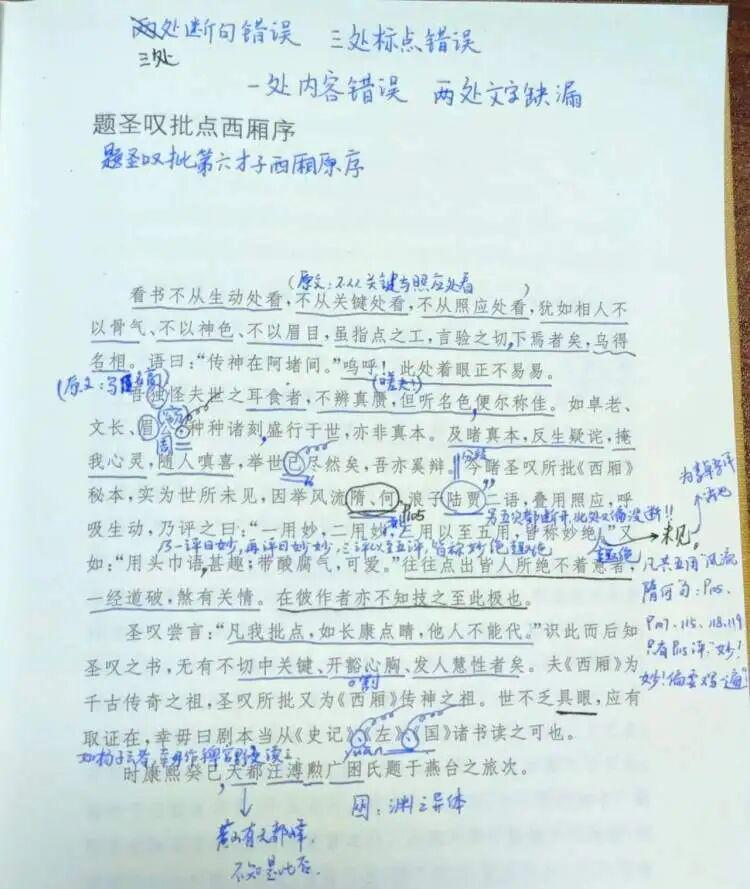 两处断句错误 三处标点错误
三处
一处内容错误 两处文字缺漏
题圣叹批点西厢序
题圣叹批第六才子西厢原序
(原文：不从关键与照应处看)
看书不从生动处看，不从关键处看，不从照应处看，犹如相人不
以骨气、不以神色、不以眉目，虽指点之工，言验之切下焉者矣，乌得
名相。语曰：“传神在阿堵间。”呜呼！此处着眼正不易易。
(嗟夫！)
吾独怪夫世之耳食者，不辨真赝，但听名色便尔称佳。如卓老、
文长、眉公种种诸刻盛行于世，亦非真本。及睹真本，反生疑诧，掩
我心灵，随人嗔喜，举世已尽然矣，吾亦奚辩。今睹圣叹所批《西厢》
秘本，实为世所未见，因举风流隋、何，浪子陆贾二语，叠用照应，呼
P105
吸生动，乃评之曰：“一用妙，二用妙，三用以至五用，皆称妙绝。”又
乃一评曰妙，再评曰妙妙，三评以至五评，皆称妙绝趣绝
趣绝
未见
如：“用头巾语甚趣；带酸腐气，可爱。”往往点出皆人所绝不着意者，
一经道破，煞有关情。在彼作者亦不知技之至此极也。
凡共五用“风流
隋何”句：P105、
P107、115、118、119
只有P115评“妙！
圣叹尝言：“凡我批点，如长康点睛，他人不能代。”识此而后知
圣叹之书，无有不切中关键、开豁心胸、发人慧性者矣。夫《西厢》为
割
千古传奇之祖，圣叹所批又为《西厢》传神之祖。世不乏具眼，应有
取证在，幸毋曰剧本当从《史记》《左》《国》诸书读之可也。
yuān
时康熙癸巳天都汪溥勲广囦氏题于燕台之旅次。
囦：渊之异体
黄山有天都峰
不知是此否.